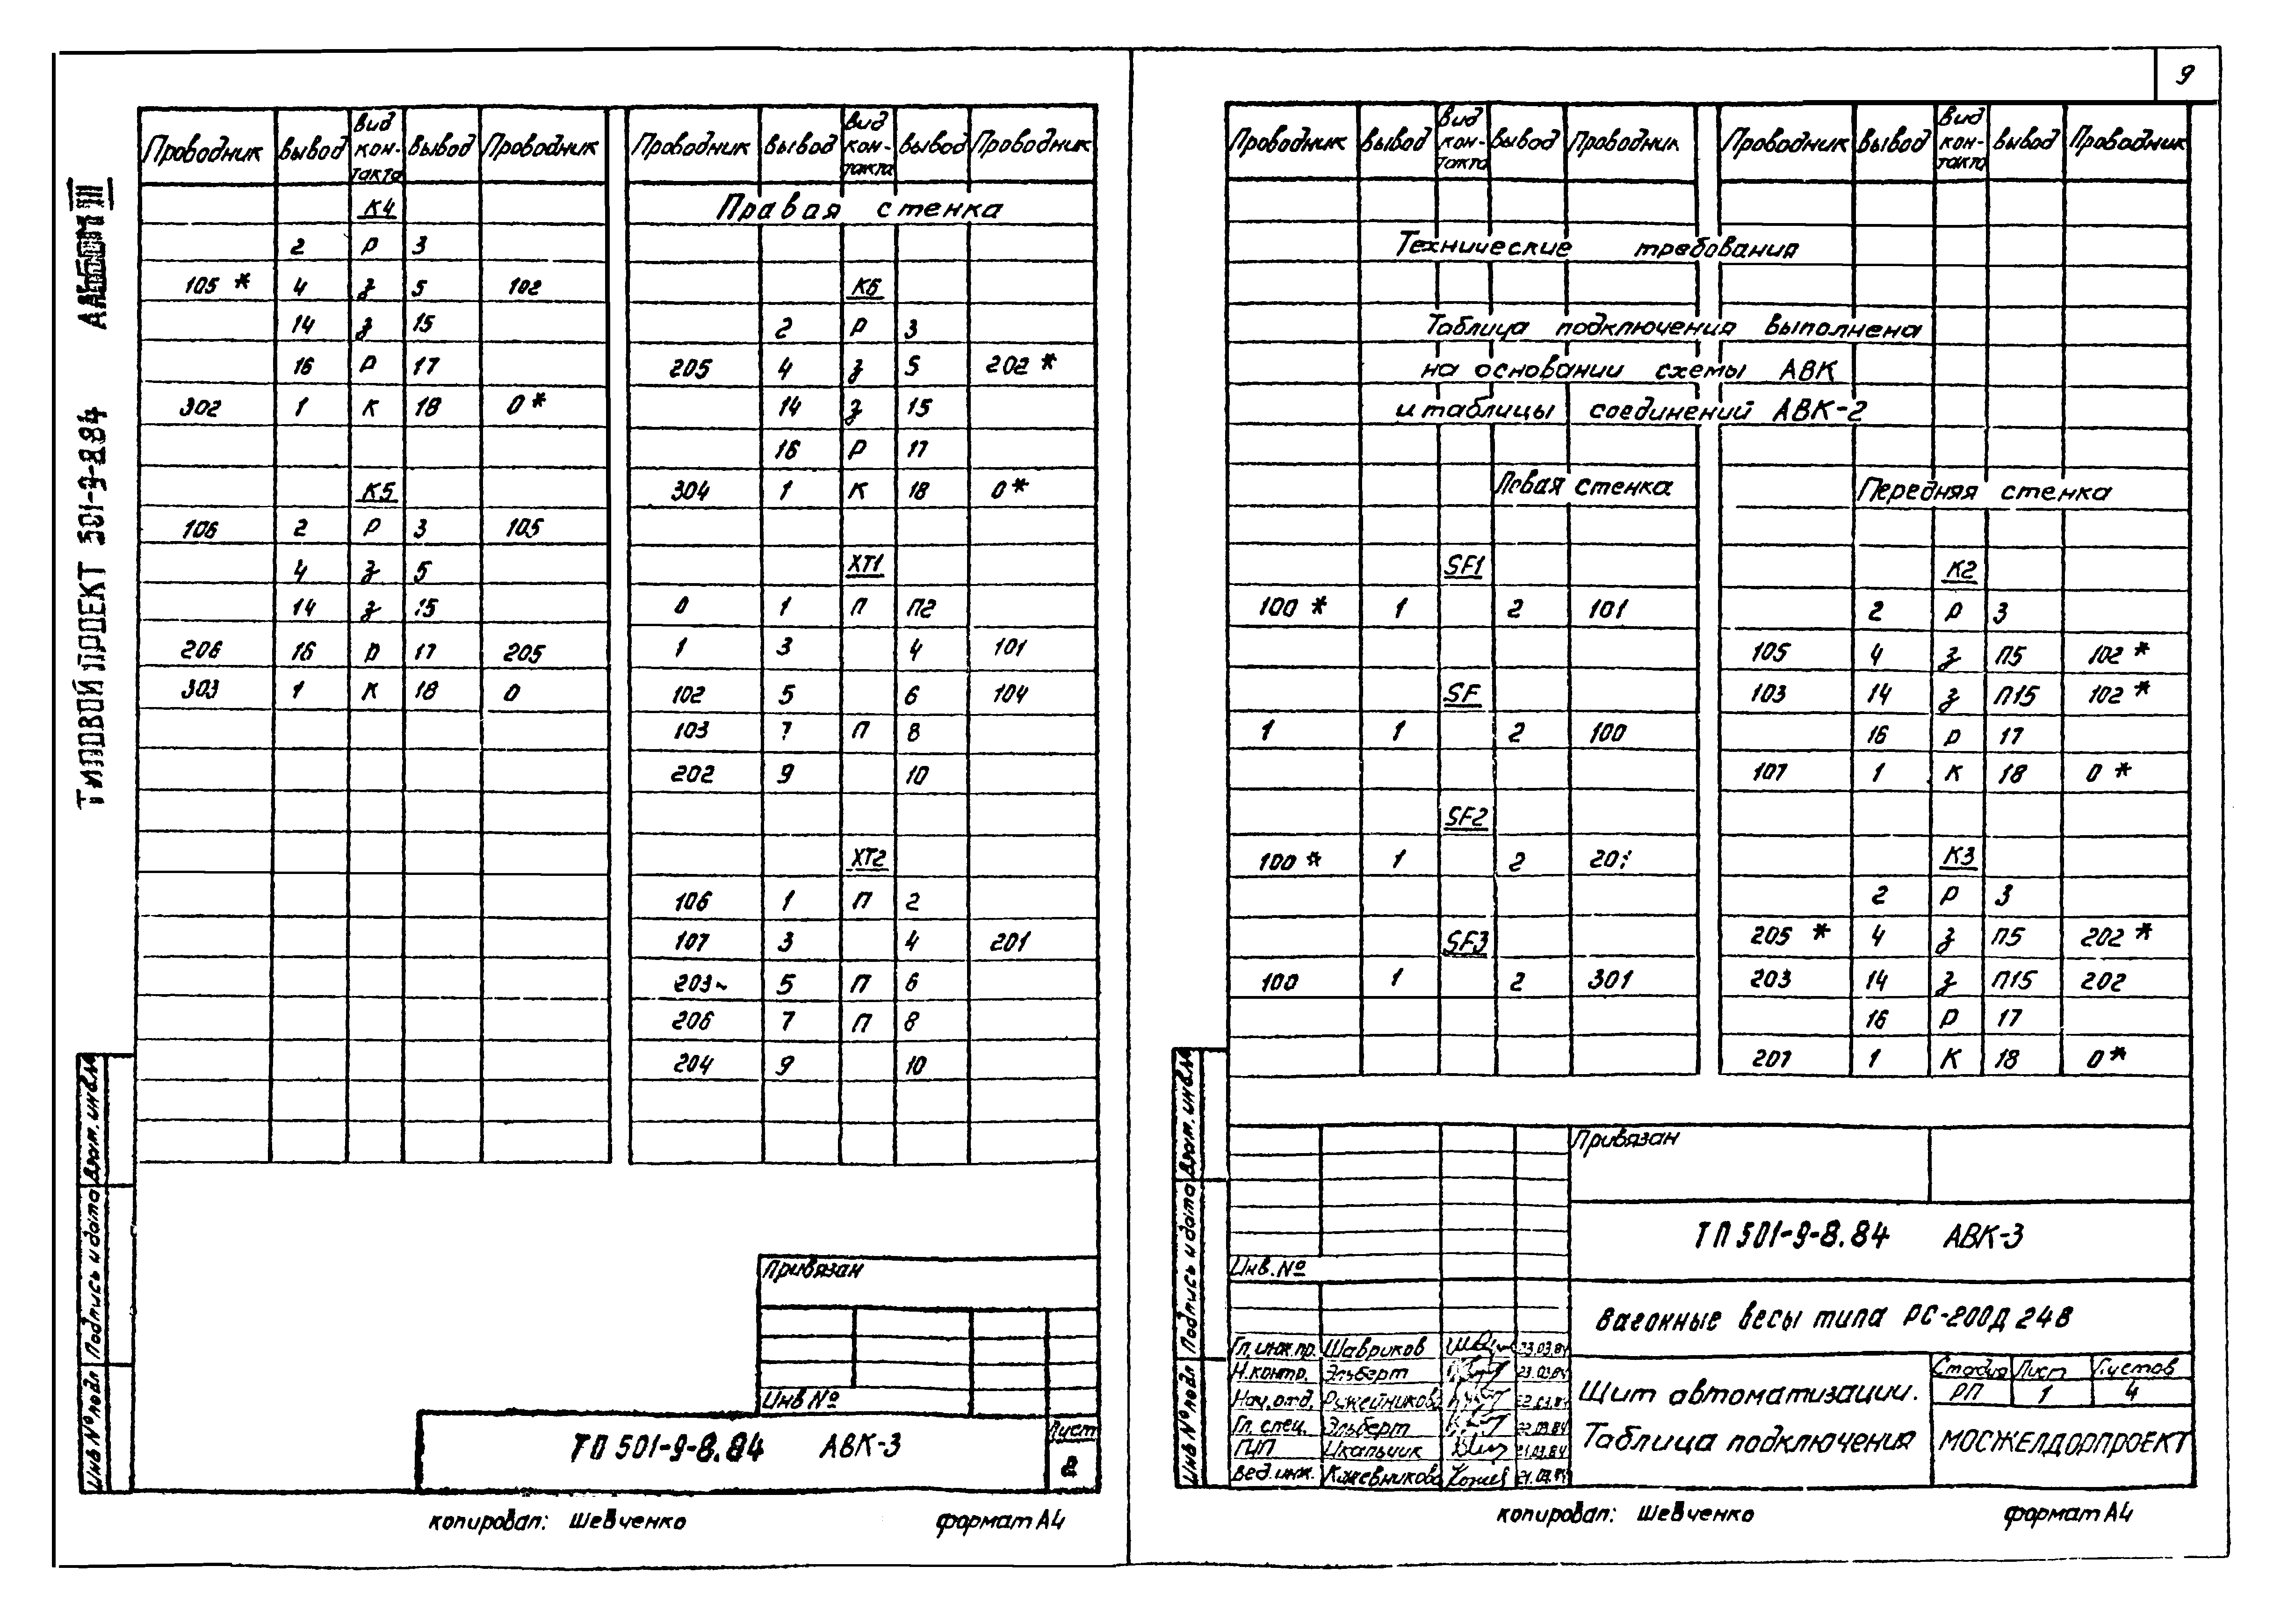 9
ТИПОВОЙ ПРОЕКТ 501-9-8.84 АЛЬБОМ III
Проводник Вывод Вид контакта Вывод Проводник
К4
2 Р 3
105 * 4 З 5 102
14 З 15
16 Р 17
302 1 К 18 0 *
К5
106 2 Р 3 105
4 З 5
14 З 15
206 16 Р 17 205
303 1 К 18 0
Проводник Вывод Вид контакта Вывод Проводник
Правая стенка
К6
2 Р 3
205 4 З 5 202 *
14 З 15
16 Р 17
304 1 К 18 0 *
ХТ1
0 1 П П2
1 3 4 101
102 5 6 104
103 7 П 8
202 9 10
ХТ2
106 1 П 2
107 3 4 201
203 5 П 6
206 7 П 8
204 9 10
Взам. инв. №
Подпись и дата
Инв № подл
Привязан
Инв №
ТП 501-9-8.84 АВК-3
Лист
2
копировал: Шевченко формат А4
Проводник Вывод Вид контакта Вывод Проводник
Проводник Вывод Вид контакта Вывод Проводник
Технические требования
Таблица подключения выполнена
на основании схемы АВК
и таблицы соединений АВК-2
Левая стенка
SF1
100 * 1 2 101
SF
1 1 2 100
SF2
100 * 1 2
SF3
100 1 2 301
Передняя стенка
К2
2 Р 3
105 4 З П5 102 *
103 14 З П15 102 *
16 Р 17
107 1 К 18 0 *
К3
2 Р 3
205 * 4 З П5 202 *
203 14 З П15 202
16 Р 17
201 1 К 18 0 *
Взам. инв. №
Подпись и дата
Инв № подл
Привязан
Инв. №
ТП 501-9-8.84 АВК-3
Вагонные весы типа РС-200Д 24В
Гл. инж. пр. Шавриков 23.03.84
Н. контр. Эльберт 23.03.84
Нач. отд. Ружейников 22.03.84
Гл. спец. Эльберт 22.03.84
ГИП 21.03.84
Вед. инж. Кожевникова 21.03.84
Щит автоматизации.
Таблица подключения
Стадия Лист Листов
РП 1 4
МОСЖЕЛДОРПРОЕКТ
копировал: Шевченко формат А4